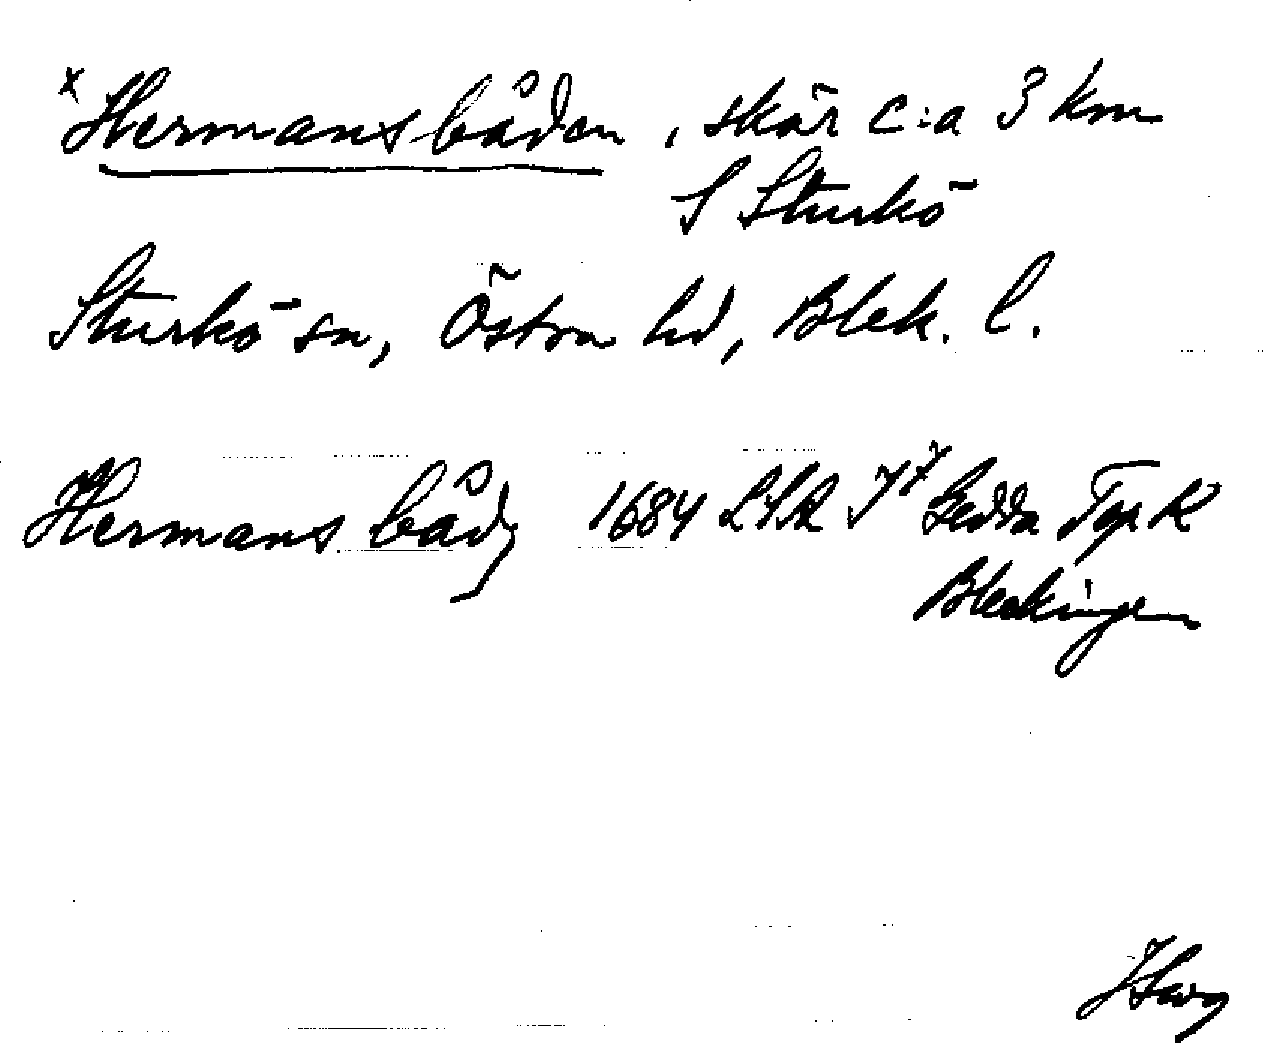 x Hermansbåden, skär c:a 3 km
S Sturkö
Sturkö sn, Östra hd, Blek. l.
Hermans båd 1684 LSA Gedda Top K
Bleckingen